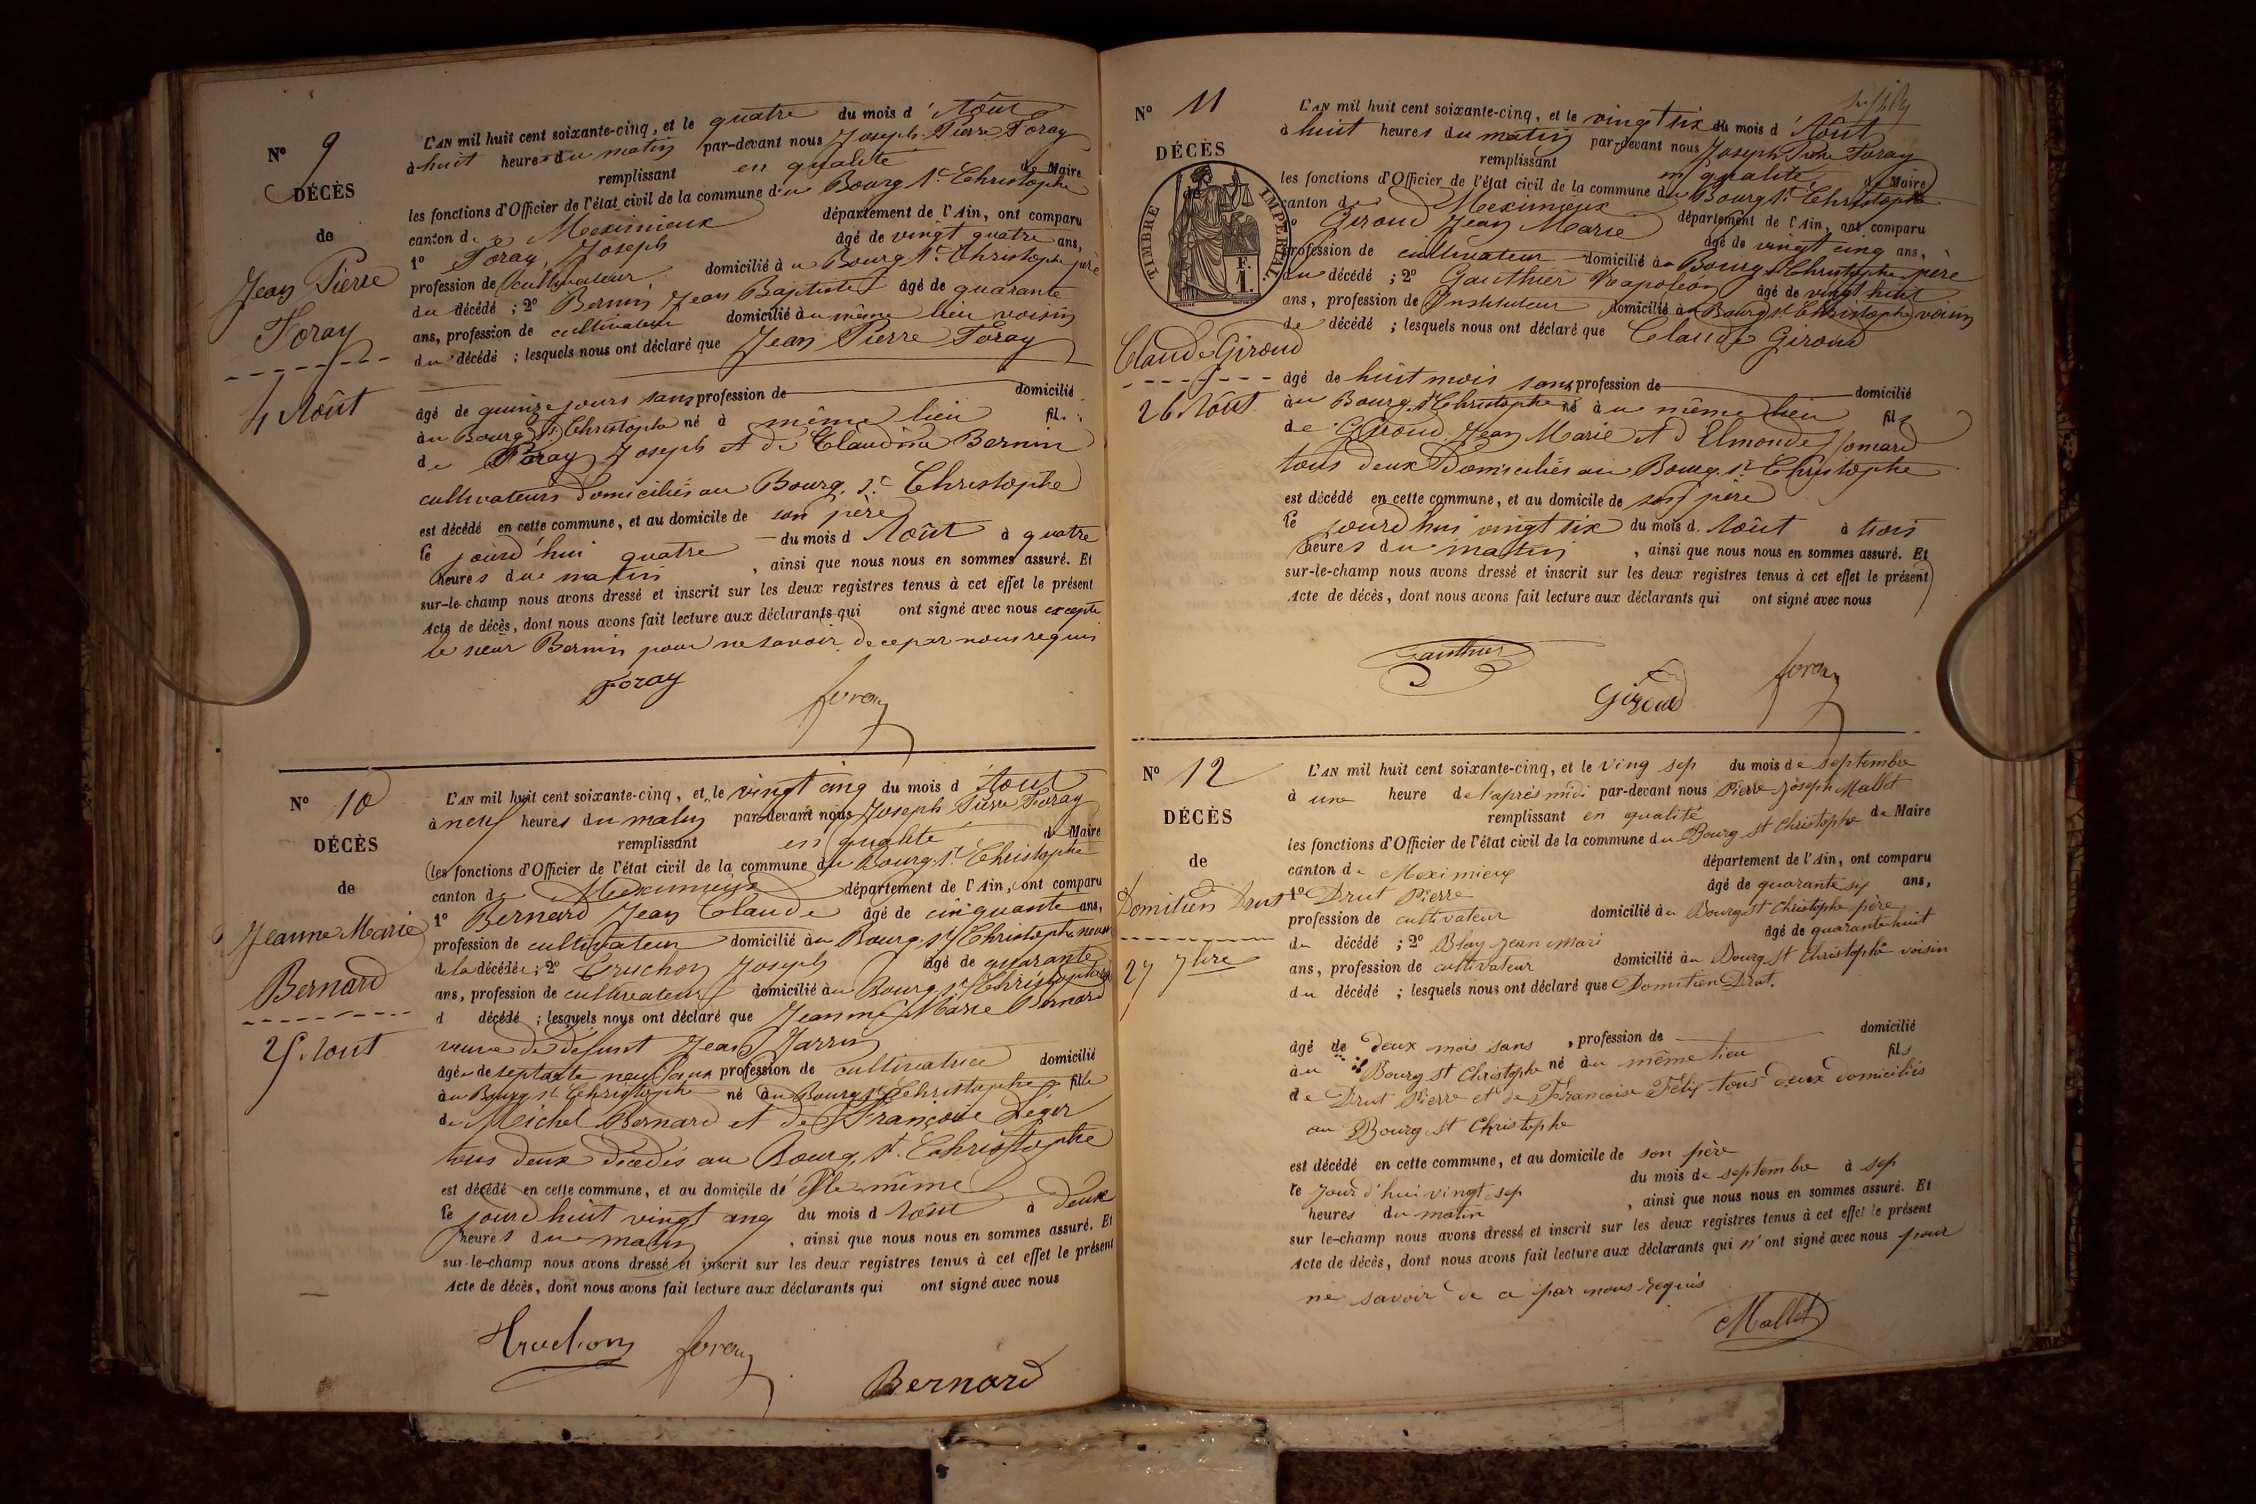 N° 9
DÉCÈS
de
Jean Pierre
Foray
4 Août
L'AN mil huit cent soixante-cinq, et le quatre du mois d'Août
à huit heures du matin par-devant nous Joseph Pierre Foray
remplissant en qualité de Maire
les fonctions d'Officier de l'état civil de la commune du Bourg St Christophe
canton de Meximieux département de l'Ain, ont comparu
1° Foray Joseph âgé de vingt quatre ans,
profession de cultivateur domicilié à u Bourg St Christophe père
du décédé ; 2° Bernin Jean Baptiste âgé de quarante
ans, profession de cultivateur domicilié au même lieu voisin
du décédé ; lesquels nous ont déclaré que Jean Pierre Foray
âgé de quinze jours sans profession de domicilié
au Bourg St Christophe né à même lieu fil
de Foray Joseph et de Claudine Bernin
cultivateurs domiciliés au Bourg St Christophe
est décédé en cette commune, et au domicile de son père
le jourd'hui quatre du mois d Août à quatre
heures du matin , ainsi que nous nous en sommes assuré. Et
sur-le-champ nous avons dressé et inscrit sur les deux registres tenus à cet effet le présent
Acte de décès, dont nous avons fait lecture aux déclarants qui ont signé avec nous excepté
le sieur Bernin pour ne savoir de ce par nous requis
Foray foray
N° 10
DÉCÈS
de
Jeanne Marie
Bernard
25 Aout
L'AN mil huit cent soixante-cinq, et le vingt cinq du mois d'Aout
à neuf heures du matin par-devant nous Joseph Pierre Foray
remplissant en qualité de Maire
les fonctions d'Officier de l'état civil de la commune du Bourg St Christophe
canton de Meximieux département de l'Ain, ont comparu
1° Bernard Jean Claude âgé de cinquante ans,
profession de cultivateur domicilié au Bourg St Christophe neveu
de la décédée ; 2° Truchon Joseph âgé de quarante
ans, profession de cultivateur domicilié au Bourg St Christophe
d décédé ; lesquels nous ont déclaré que Jeanne Marie Bernard
veuve de défunt Jean Jarrin
âgée de septante neuf ans profession de cultivatrice domicilié
au Bourg St Christophe né au Bourg St Christophe fille
de Michel Bernard et de Françoise Léger
tous deux décédés au Bourg St Christophe
est décédé en cette commune, et au domicile d'Elle même
le jourd'huit vingt cinq du mois d Août à deux
heures du matin , ainsi que nous nous en sommes assuré. Et
sur-le-champ nous avons dressé et inscrit sur les deux registres tenus à cet effet le présent
Acte de décès, dont nous avons fait lecture aux déclarants qui ont signé avec nous
Truchon foray
Bernard
N° 11
DÉCÈS
TIMBRE IMPÉRIAL
Claude Giroud
26 Août
L'AN mil huit cent soixante-cinq, et le vingt six du mois d'Août
à huit heures du matin par-devant nous Joseph Pierre Foray
remplissant en qualité de Maire
les fonctions d'Officier de l'état civil de la commune du Bourg St Christophe
canton de Meximieux département de l'Ain, ont comparu
Giroud Jean Marie âgé de vingt cinq ans,
profession de cultivateur domicilié à u Bourg St Christophe père
du décédé ; 2° Gauthier Napoléon âgé de vingt huit
ans, profession de Instituteur domicilié à u Bourg St Christophe voisin
de décédé ; lesquels nous ont déclaré que Claude Giroud
âgé de huit mois sans profession de domicilié
au Bourg St Christophe né à u même lieu fils
de Giroud Jean Marie et d'Elmonde Jomard
tous deux Domiciliés au Bourg St Christophe
est décédé en cette commune, et au domicile de son père
le jourd'hui vingt six du mois d. Août à trois
heures du matin , ainsi que nous nous en sommes assuré. Et
sur-le-champ nous avons dressé et inscrit sur les deux registres tenus à cet effet le présent
Acte de décès, dont nous avons fait lecture aux déclarants qui ont signé avec nous
Gauthier
Giroud foray
N° 12
DÉCÈS
de
Domitien Drut
27 7bre
L'AN mil huit cent soixante-cinq, et le ving sep du mois de septembre
à une heure de l'après midi par-devant nous Pierre Joseph Mallet
remplissant en qualité de Maire
les fonctions d'Officier de l'état civil de la commune du Bourg St Christophe
canton de Meximieux département de l'Ain, ont comparu
1° Drut Pierre âgé de quarante six ans,
profession de cultivateur domicilié au Bourg St Christophe père
du décédé ; 2° Blay Jean Mari âgé de quarante huit
ans, profession de cultivateur domicilié au Bourg St Christophe voisin
du décédé ; lesquels nous ont déclaré que Domitien Drut.
âgé de deux mois sans , profession de domicilié
au Bourg St Christophe né au même lieu fils
de Drut Pierre et de Francoise Félix tous deux domiciliés
au Bourg St Christophe
est décédé en cette commune, et au domicile de son père
le Jour d'hui vingt sep du mois de septembre à sep
heures du matin , ainsi que nous nous en sommes assuré. Et
sur le-champ nous avons dressé et inscrit sur les deux registres tenus à cet effet le présent
Acte de décès, dont nous avons fait lecture aux déclarants qui n'ont signé avec nous pour
ne savoir de ce par nous requis
Mallet